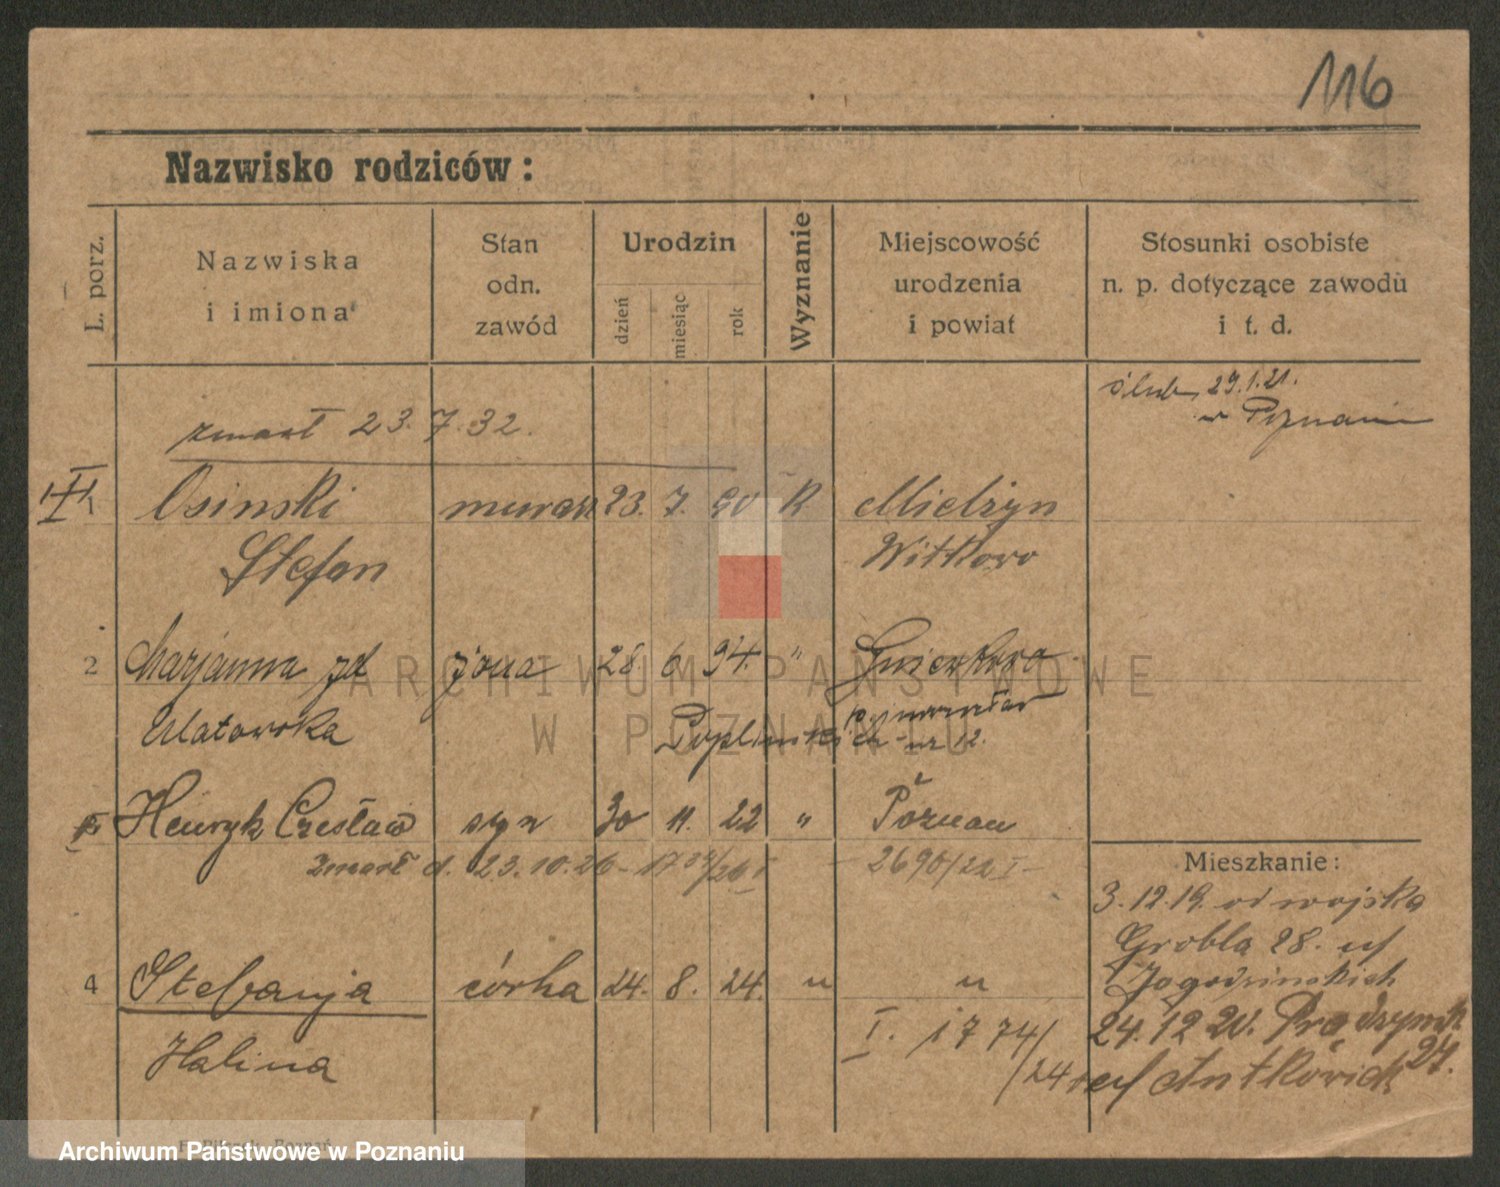 116
Nazwisko rodziców:
L. porz.
Nazwiska
i imiona
Stan
odn.
zawód
Urodzin
dzień
miesiąc
rok
Wyznanie
Miejscowość
urodzenia
i powiat
Stosunki osobiste
n. p. dotyczące zawodu
i t. d.
ślub 29.1.21.
w Poznaniu
zmarł 23.7.32.
Osinski murarz 23. 7. 90 K Mielżyn
Stefan Witkowo
2 Marjanna zd żona 28 6 94. " Gniewkowo
Ulatowska
Henryk Czesław syn 30 11. 22 " Poznań
Zmarł d. 23.10.26 - 1737/26 I - 2690/22 I -
Mieszkanie:
3.12.19. od wojska
Grobla 28. u/
Jagodzinskich
4 Stefanja córka 24. 8. 24. " "
Halina
I. 1774/
/24
24.12 20. Prądzyńsk
27.
u/ Antkowiak
ARCHIWUM PAŃSTWOWE
W POZNANIU
Archiwum Państwowe w Poznaniu